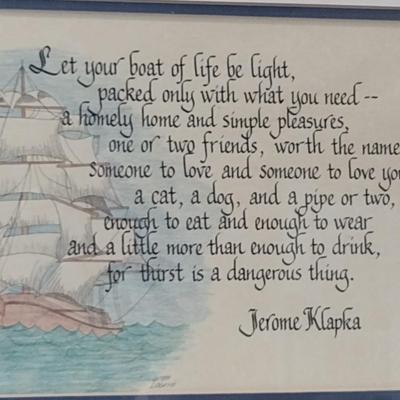 Let your boat of life be light,
packed only with what you need --
a homely home and simple pleasures,
one or two friends, worth the name
someone to love and someone to love you
a cat, a dog, and a pipe or two,
enough to eat and enough to wear
and a little more than enough to drink,
for thirst is a dangerous thing.
Jerome Klapka